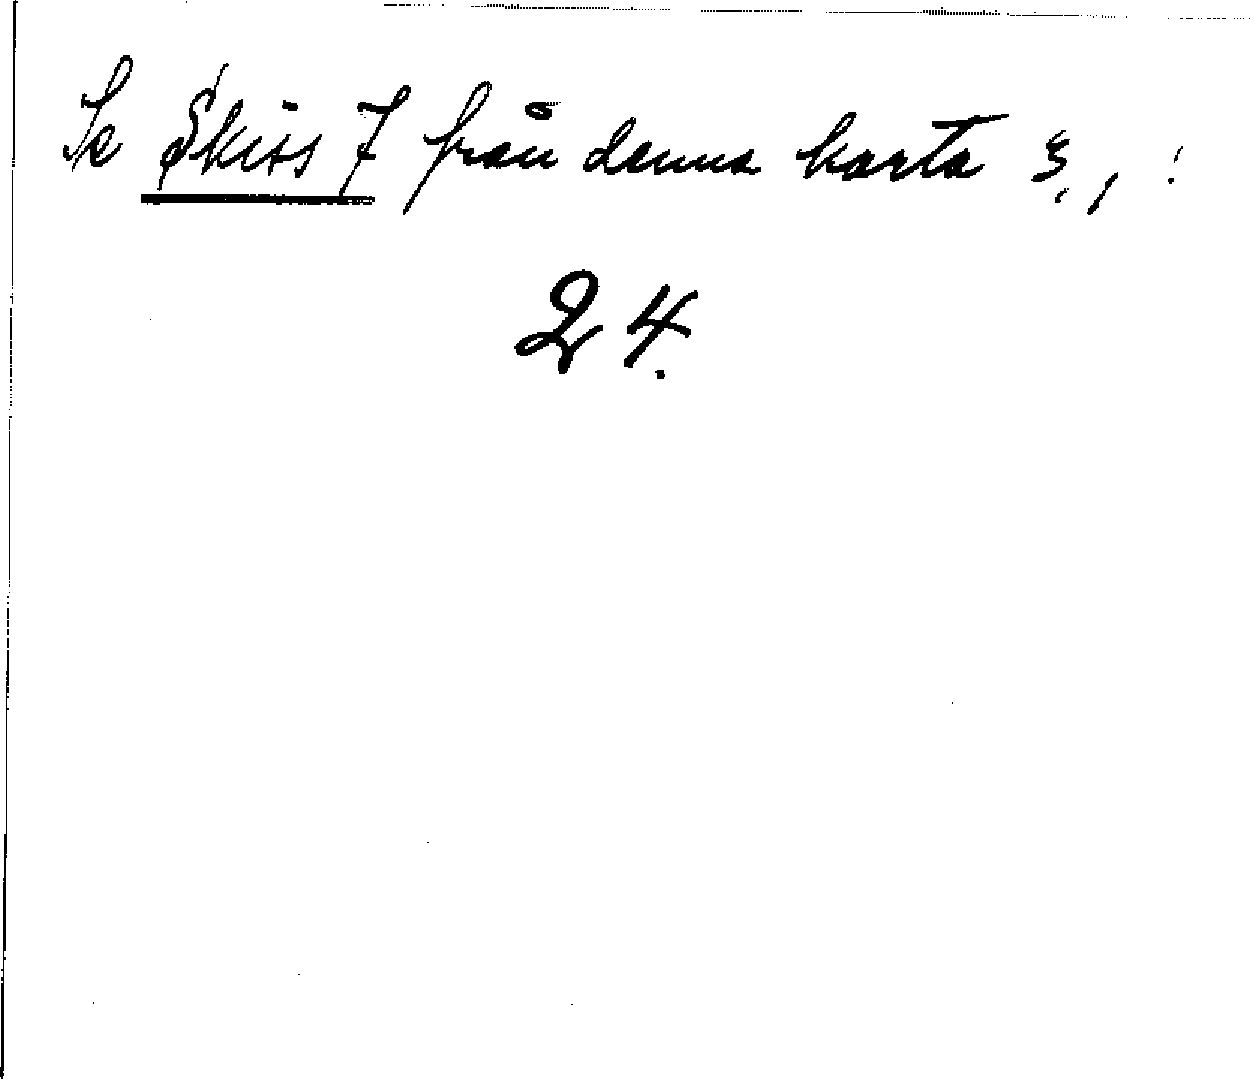 Se Skiss 7 från denna karta 3, !
24.